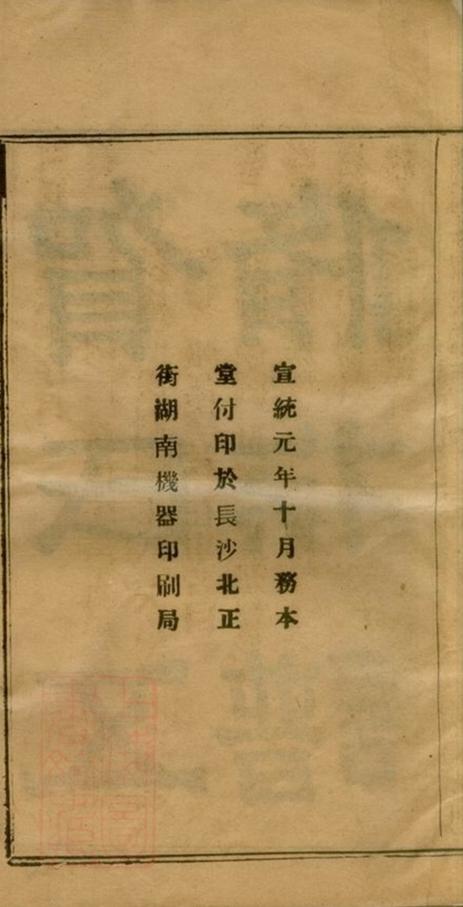 宣統元年十月務本
堂付印於長沙北正
街湖南機器印刷局